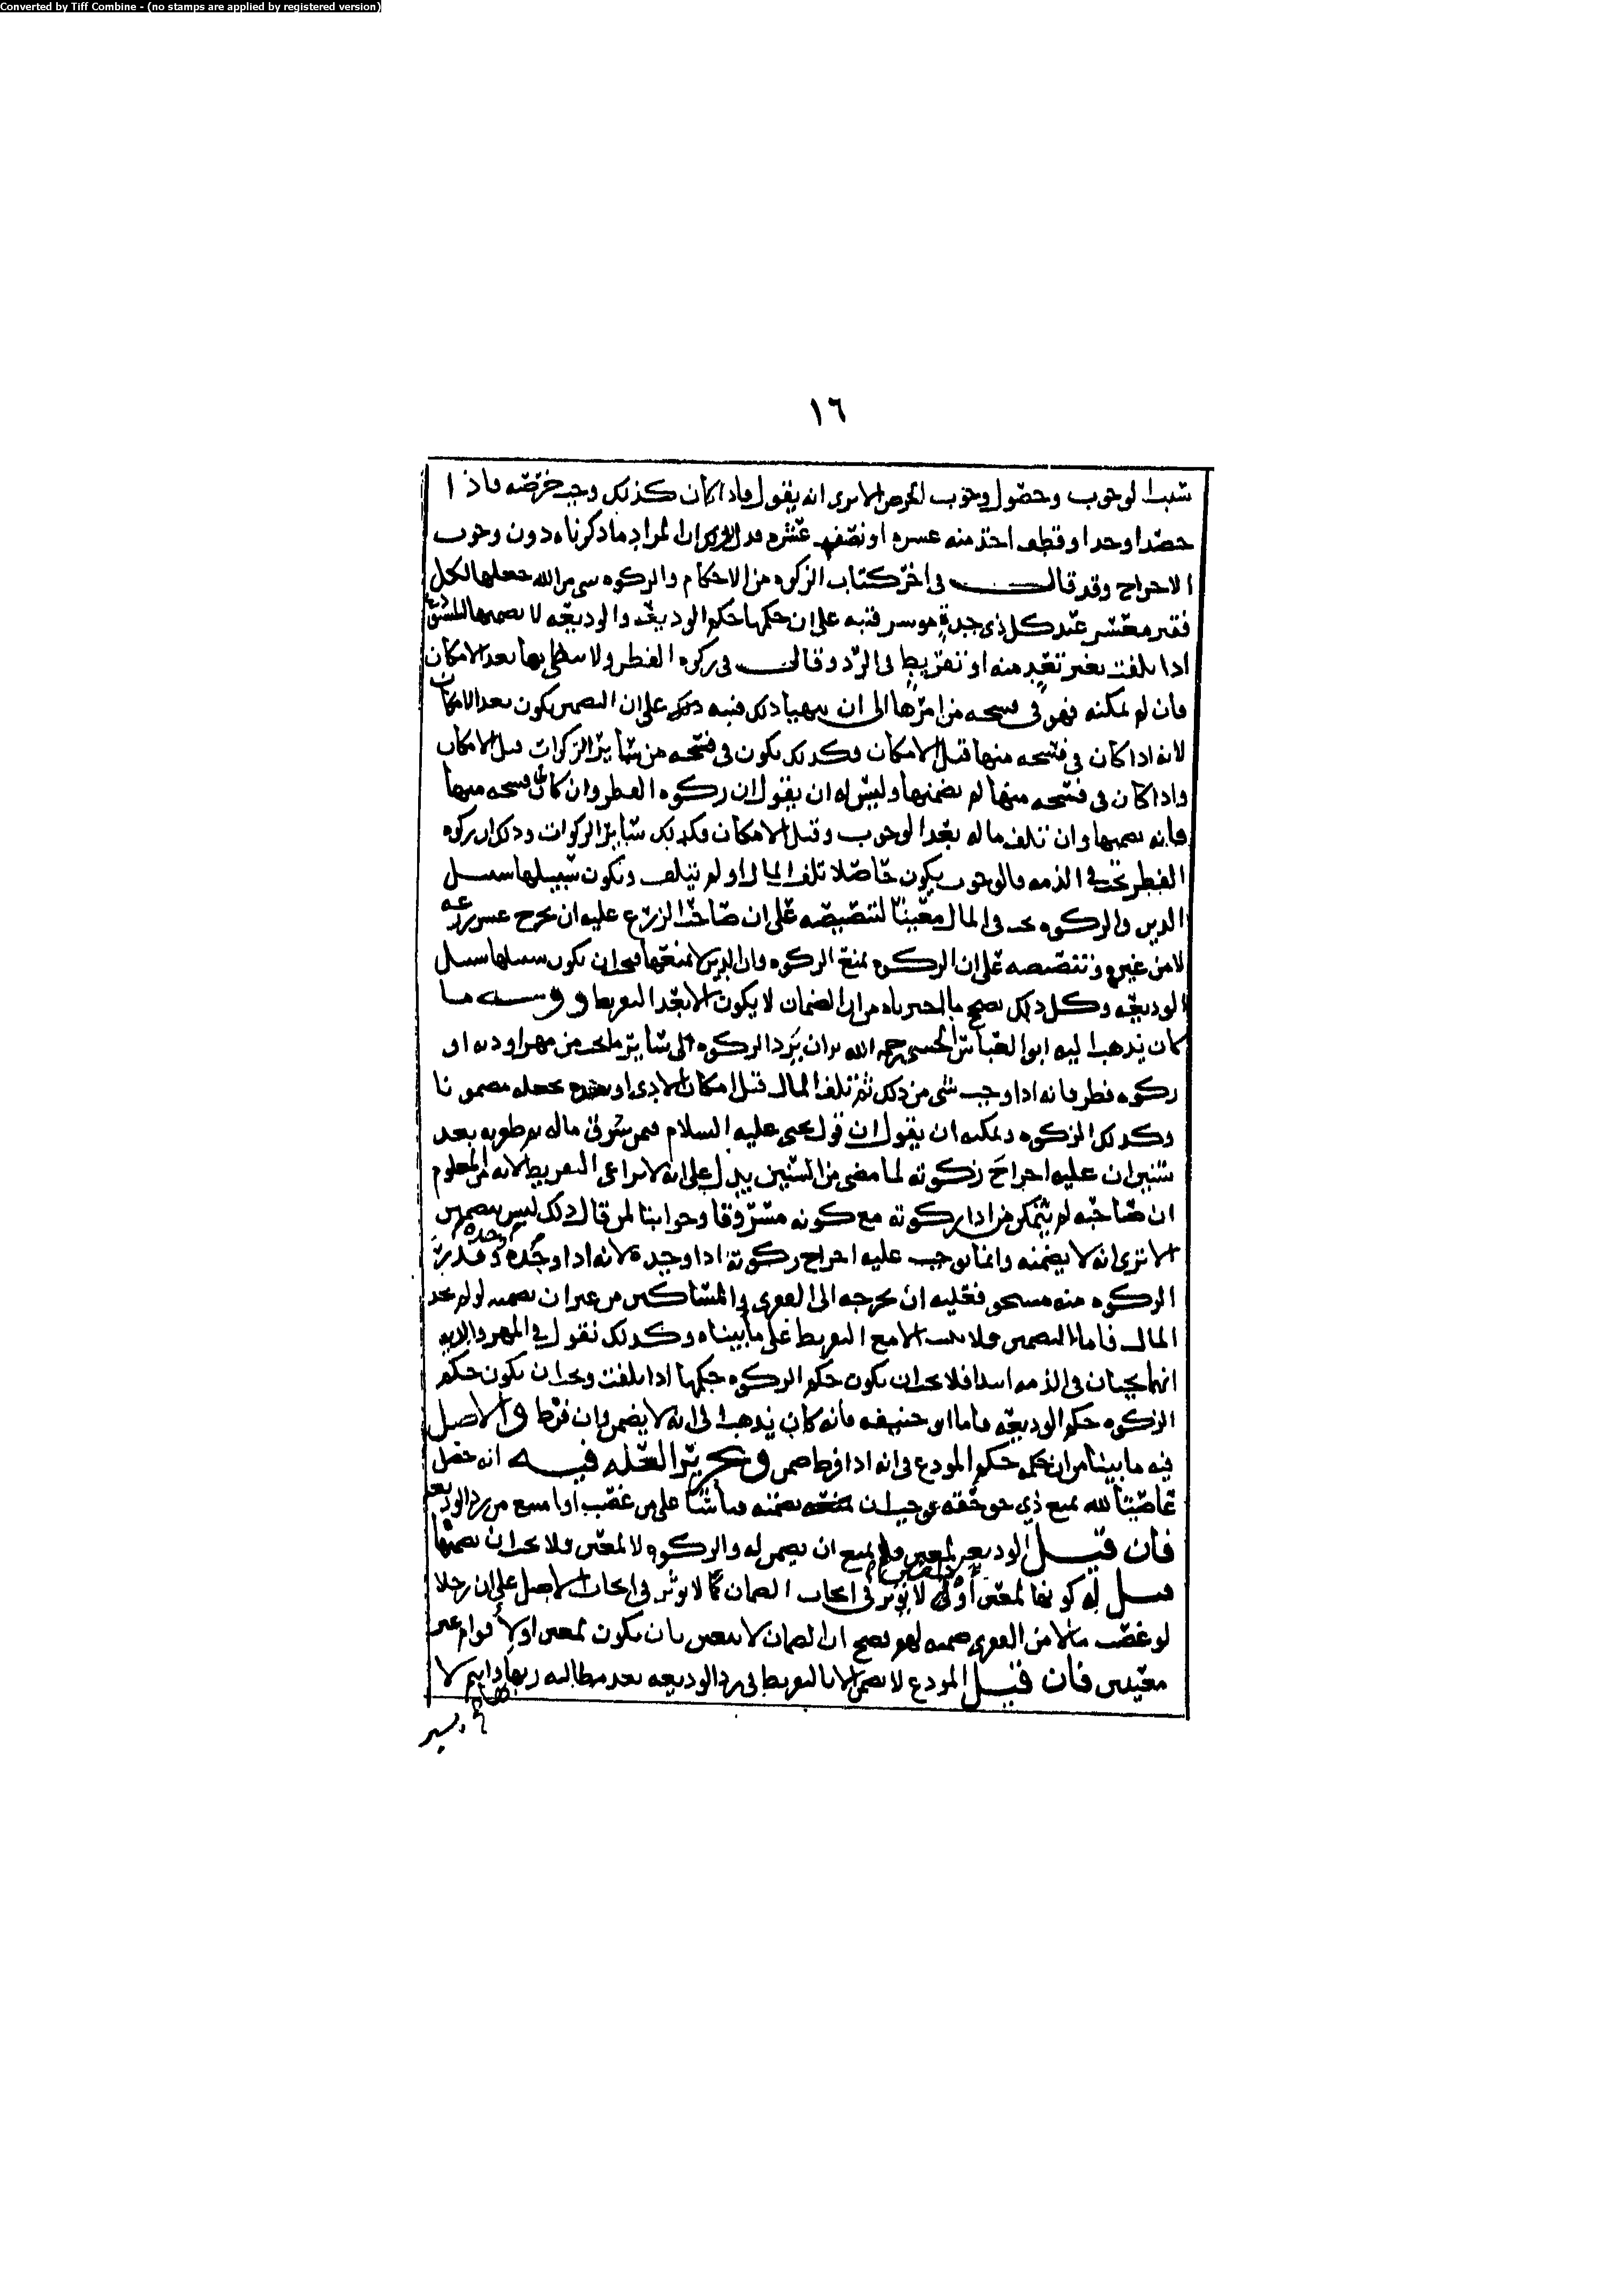 Converted by Tiff Combine - (no stamps are applied by registered version)
١٦
الوجوب وحصول وجوب الخرص الا ترى انه يقول فاذا كان كذلك وجب خرصه فاذا
حصد او جد او قطف اخذ منه عشره او نصف عشره فدل ان المراد ما ذكرناه دون وجوب
الاخراج وقد قال في اخر كتاب الزكوه من الاحكام والزكوه شي من الله جعلها لكل
فقير معسر عند كل ذي جدة موسر فنبه على ان حكمها حكم الوديعة والوديعه لا يضمنها
اذا تلفت بغير تعد منه او تفريط في الرد وقال في زكوه الفطر ولا بها بعد الامكان
فان لم يمكنه فهو في فسحه من امرها الى ان يتهيا ذلك فنبه على ان التضمين يكون بعد الامكان
لانه اذا كان في فسحه منها قبل الامكان فكذلك يكون في فسحه من سائر الزكوات قبل الامكان
واذا كان في فسحه منها لم يضمنها وليس له ان يقول ان زكوه الفطر وان كان في فسحه منها
فانه يضمنها وان تلف ماله بعد الوجوب وقبل الامكان فكذلك سائر الزكوات وذلك ان زكوه
الفطر تجب في الذمه فالوجوب يكون حاصلا تلف المال او لم يتلف وتكون سبيلها سبيل
الدين والزكوه تجب في المال معينا لتنصيصه على ان صاحب الزرع عليه ان يخرج عشر زرعه
لا من غيره وتنصيصه على ان الزكوه تمنع الزكوه وان الدين لا يمنعها فيجب ان تكون سبيلها سبيل
الوديعه وكل ذلك يصحح ما اخبرناه من ان الضمان لا يكون الا بعد التفريط ما
كان يذهب اليه ابو العباس الحسني رحمه الله ان يرد الزكوه الى سائر ما يجب من مهر او دية او
زكوه فطر فانه اذا وجب شي من ذلك ثم تلف المال قبل امكان الادى او بعده يجعله مضمونا
وكذلك الزكوه ويمكنه ان يقول ان قول يحيى عليه السلام فيمن سرق ماله ثم ظفر به بعد
سنين ان عليه اخراج زكوته لما مضى من السنين يدل على انه لا يراعى التفريط لانه من المعلوم
ان صاحبه لم يتمكن من ادا زكوته مع كونه مسروقا وجوابنا لمن قال ذلك ليس بتضمين
الا ترى انه لا يضمنه وانما يوجب عليه اخراج زكوته اذا وجده لانه اذا وجده وجده وقدر
الزكوه منه مستحق فعليه ان يخرجه الى الفقرى والمساكين من غير ان يضمنه لو لم يجد
المال فاما التضمين فلا يثبت الا مع التفريط على ما بيناه وكذلك نقول في المهر والدية
انهما يجبان في الذمه ابتدا فلا يجب ان يكون حكم الزكوه حكمها اذا تلفت ويجب ان يكون حكم
الزكوه حكم الوديعه فاما ابو حنيفه فانه كان يذهب الى انه لا يضمن وان فرط والاصل
فيه ما بينا من ان حكمه حكم المودع في انه اذا فرط ضمن وتحرير العله فيه انه حصل
عاصيا لله بمنع ذي حق حقه فوجب ان تضمنه قياسا على من غصب او امتنع من رد الوديعه
فان قيل الوديعه لمعين فلم يمتنع ان يضمن له والزكوه لا لمعين فلا يجب ان يضمنها
قيل له كونها لمعين أو لا لا يؤثر في ايجاب الضمان كما لا يوثر في ايجاب الاصل على ان رجلا
لو غصب مالا من الفقرى ضمنه لهم فصح ان الضمان لا يتعين بان يكون لمعين او لاقوام غير
معينين فان قيل المودع لا يضمن الا بالتفريط في رد الوديعه بعد مطالبه ربها وانتم لا